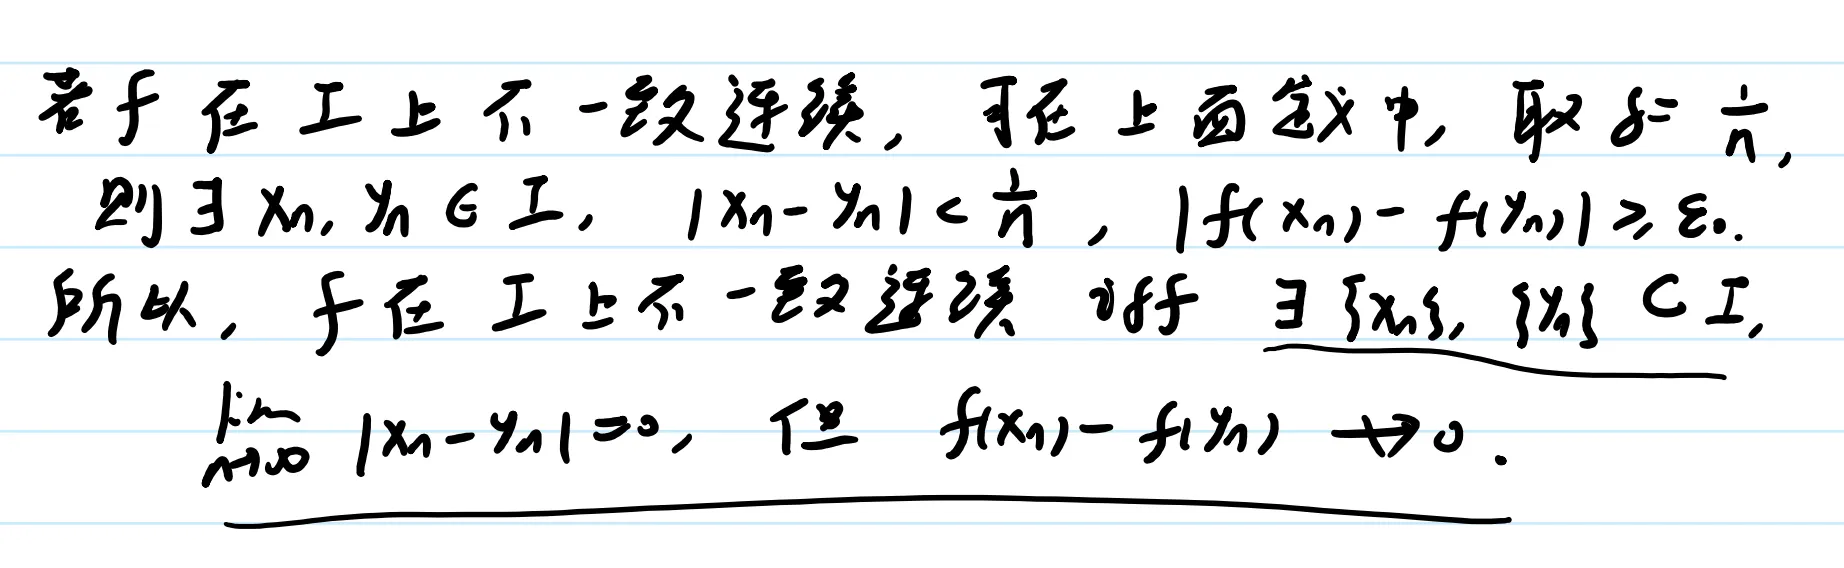 若 f 在 I 上不一致连续, 可在上面定义中, 取 δ = 1/n,
则 ∃ xₙ, yₙ ∈ I, |xₙ - yₙ| < 1/n, |f(xₙ) - f(yₙ)| ≥ ε₀.
所以, f 在 I 上不一致连续 iff ∃ {xₙ}, {yₙ} ⊂ I,
lim_{n→∞} |xₙ - yₙ| = 0, 但 f(xₙ) - f(yₙ) ↛ 0.